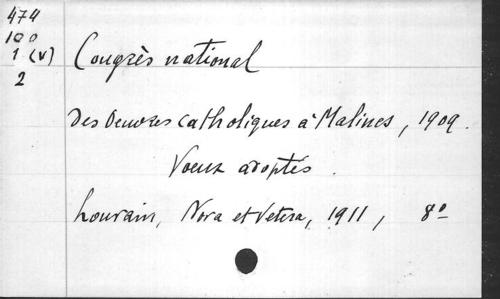 474
100
1 (v)
2
Congrès national
des Oeuvres catholiques à Malines, 1909.
Voeux adoptés.
Louvain, Nova et Vetera, 1911, 8º